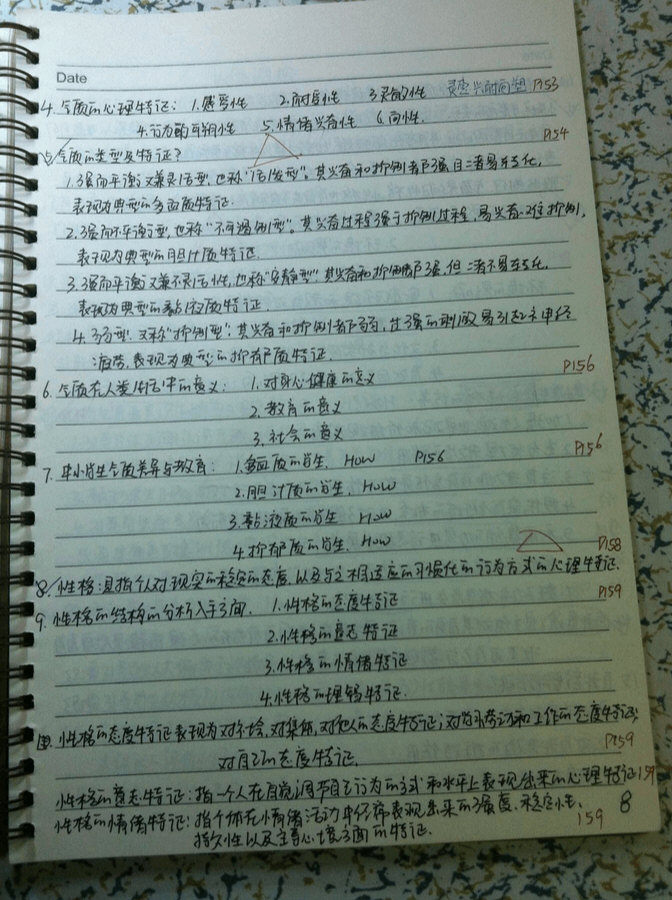 Date
4. 气质的心理特征: 1.感受性 2.耐受性 3.灵敏性 灵感兴耐向塑 P153
4.行为的可塑性 5.情绪兴奋性 6.向性.
P154
5.气质的类型及特征?
1.强而平衡又兼灵活型, 也称"活泼型". 其兴奋和抑制都强且二者易转化,
表现为典型的多血质特征.
2.强而不平衡型, 也称"不可遏制型". 其兴奋过程强于抑制过程, 易兴奋难抑制,
表现为典型的胆汁质特征.
3.强而平衡又兼不灵活性, 也称"安静型". 其兴奋和抑制都强, 但二者不易转化,
表现为典型的黏液质特征.
4.弱型. 又称"抑制型". 其兴奋和抑制都弱, 过强的刺激易引起神经
疲劳, 表现为典型的抑郁质特征.
P156
6. 气质在人类生活中的意义: 1.对身心健康的意义
2.教育的意义
3.社会的意义
7. 中小学生气质差异与教育: 1.多血质的学生. How P156 P156
2.胆汁质的学生. How
3.黏液质的学生. How
4.抑郁质的学生. How P158
8. 性格: 是指个人对现实的稳定的态度, 以及与之相适应的习惯化的行为方式的心理特征.
9. 性格的结构的分析入手方面. 1.性格的态度特征 P159
2.性格的意志特征
3.性格的情绪特征
4.性格的理智特征.
性格的态度特征表现为对社会, 对集体, 对他人的态度特征; 对学习劳动和工作的态度特征;
对自己的态度特征. P159
性格的意志特征: 指一个人在自觉调节自己行为的方式和水平上表现出来的心理特征 159
性格的情绪特征: 指个体在情绪活动中经常表现出来的强度、稳定性、 8
持久性以及主导心境方面的特征. 159